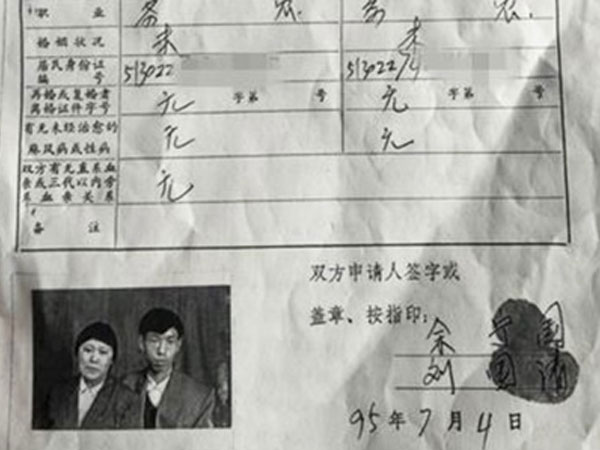 职 业 务 农. 务 农.
婚姻状况 未 未
居民身份证编号 513022 5130227
再婚或复婚者离婚证件字号 无 字第 号 无 字第 号
有无未经治愈的麻风病或性病 无 无
双方有无直系血亲或三代以内旁系血亲关系 无
备 注
双方申请人签字或
盖章、按指印:
余 国
刘 国
95年7月4日